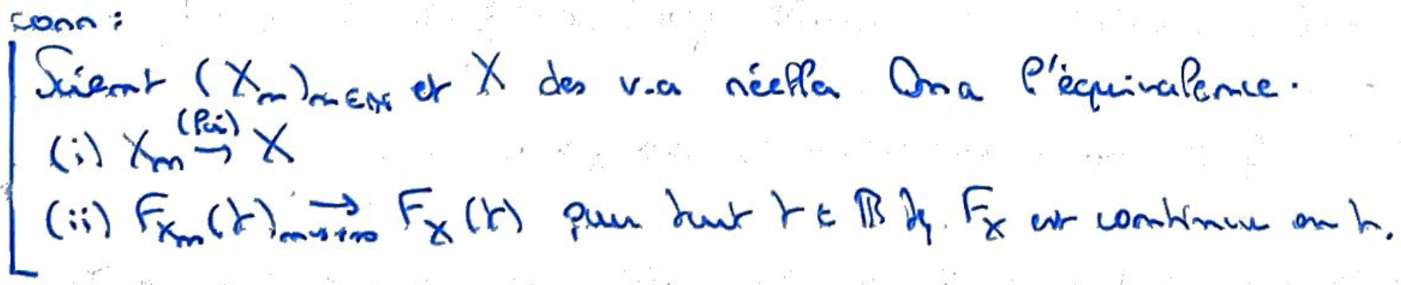 Soient (Xₙ)ₙ∈ℕ et X des v.a réelles On a l'équivalence.
(i) Xₙ →(loi) X
(ii) F_Xₙ(t) →ₙ→+∞ F_X(t) pour tout t ∈ ℝ tq F_X est continue en t.